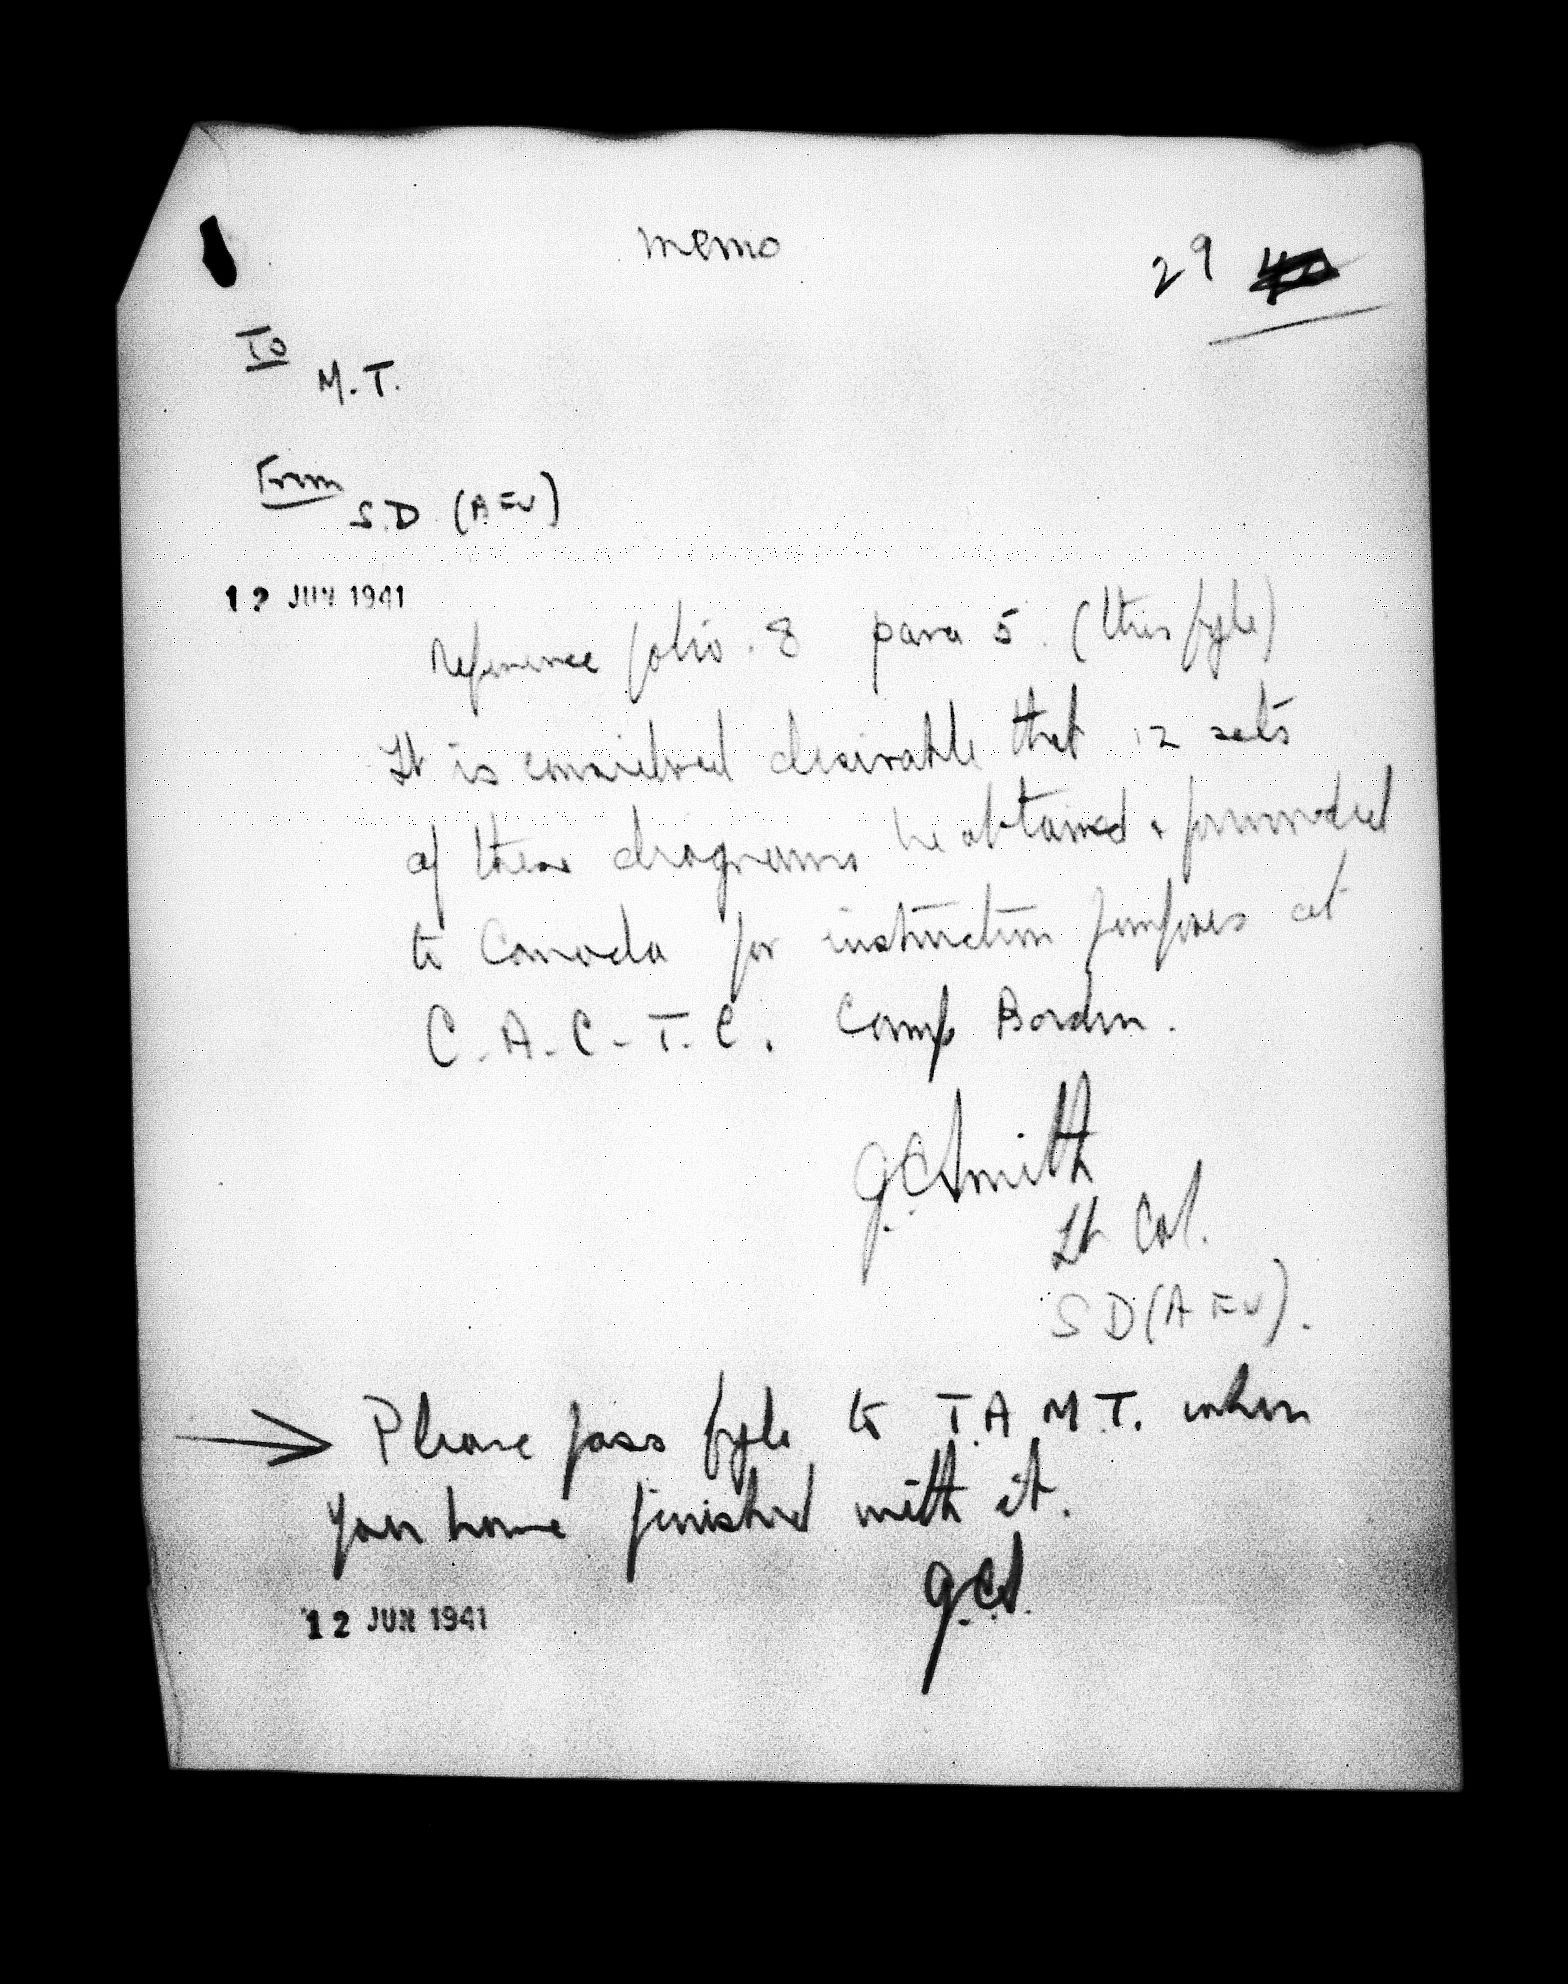 memo
29
To
M.T.
From
S.D (AFV)
12 JUN 1941
Reference folio. 8 para 5. (this fyle)
It is considered desirable that 12 sets
of these diagrams be obtained & forwarded
to Canada for instruction purposes at
C.A.C.T.C. Camp Borden.
G.C. Smith
Lt Col.
SD(AFV).
Please pass fyle to T.A.M.T. when
you have finished with it.
G.C.S.
12 JUN 1941